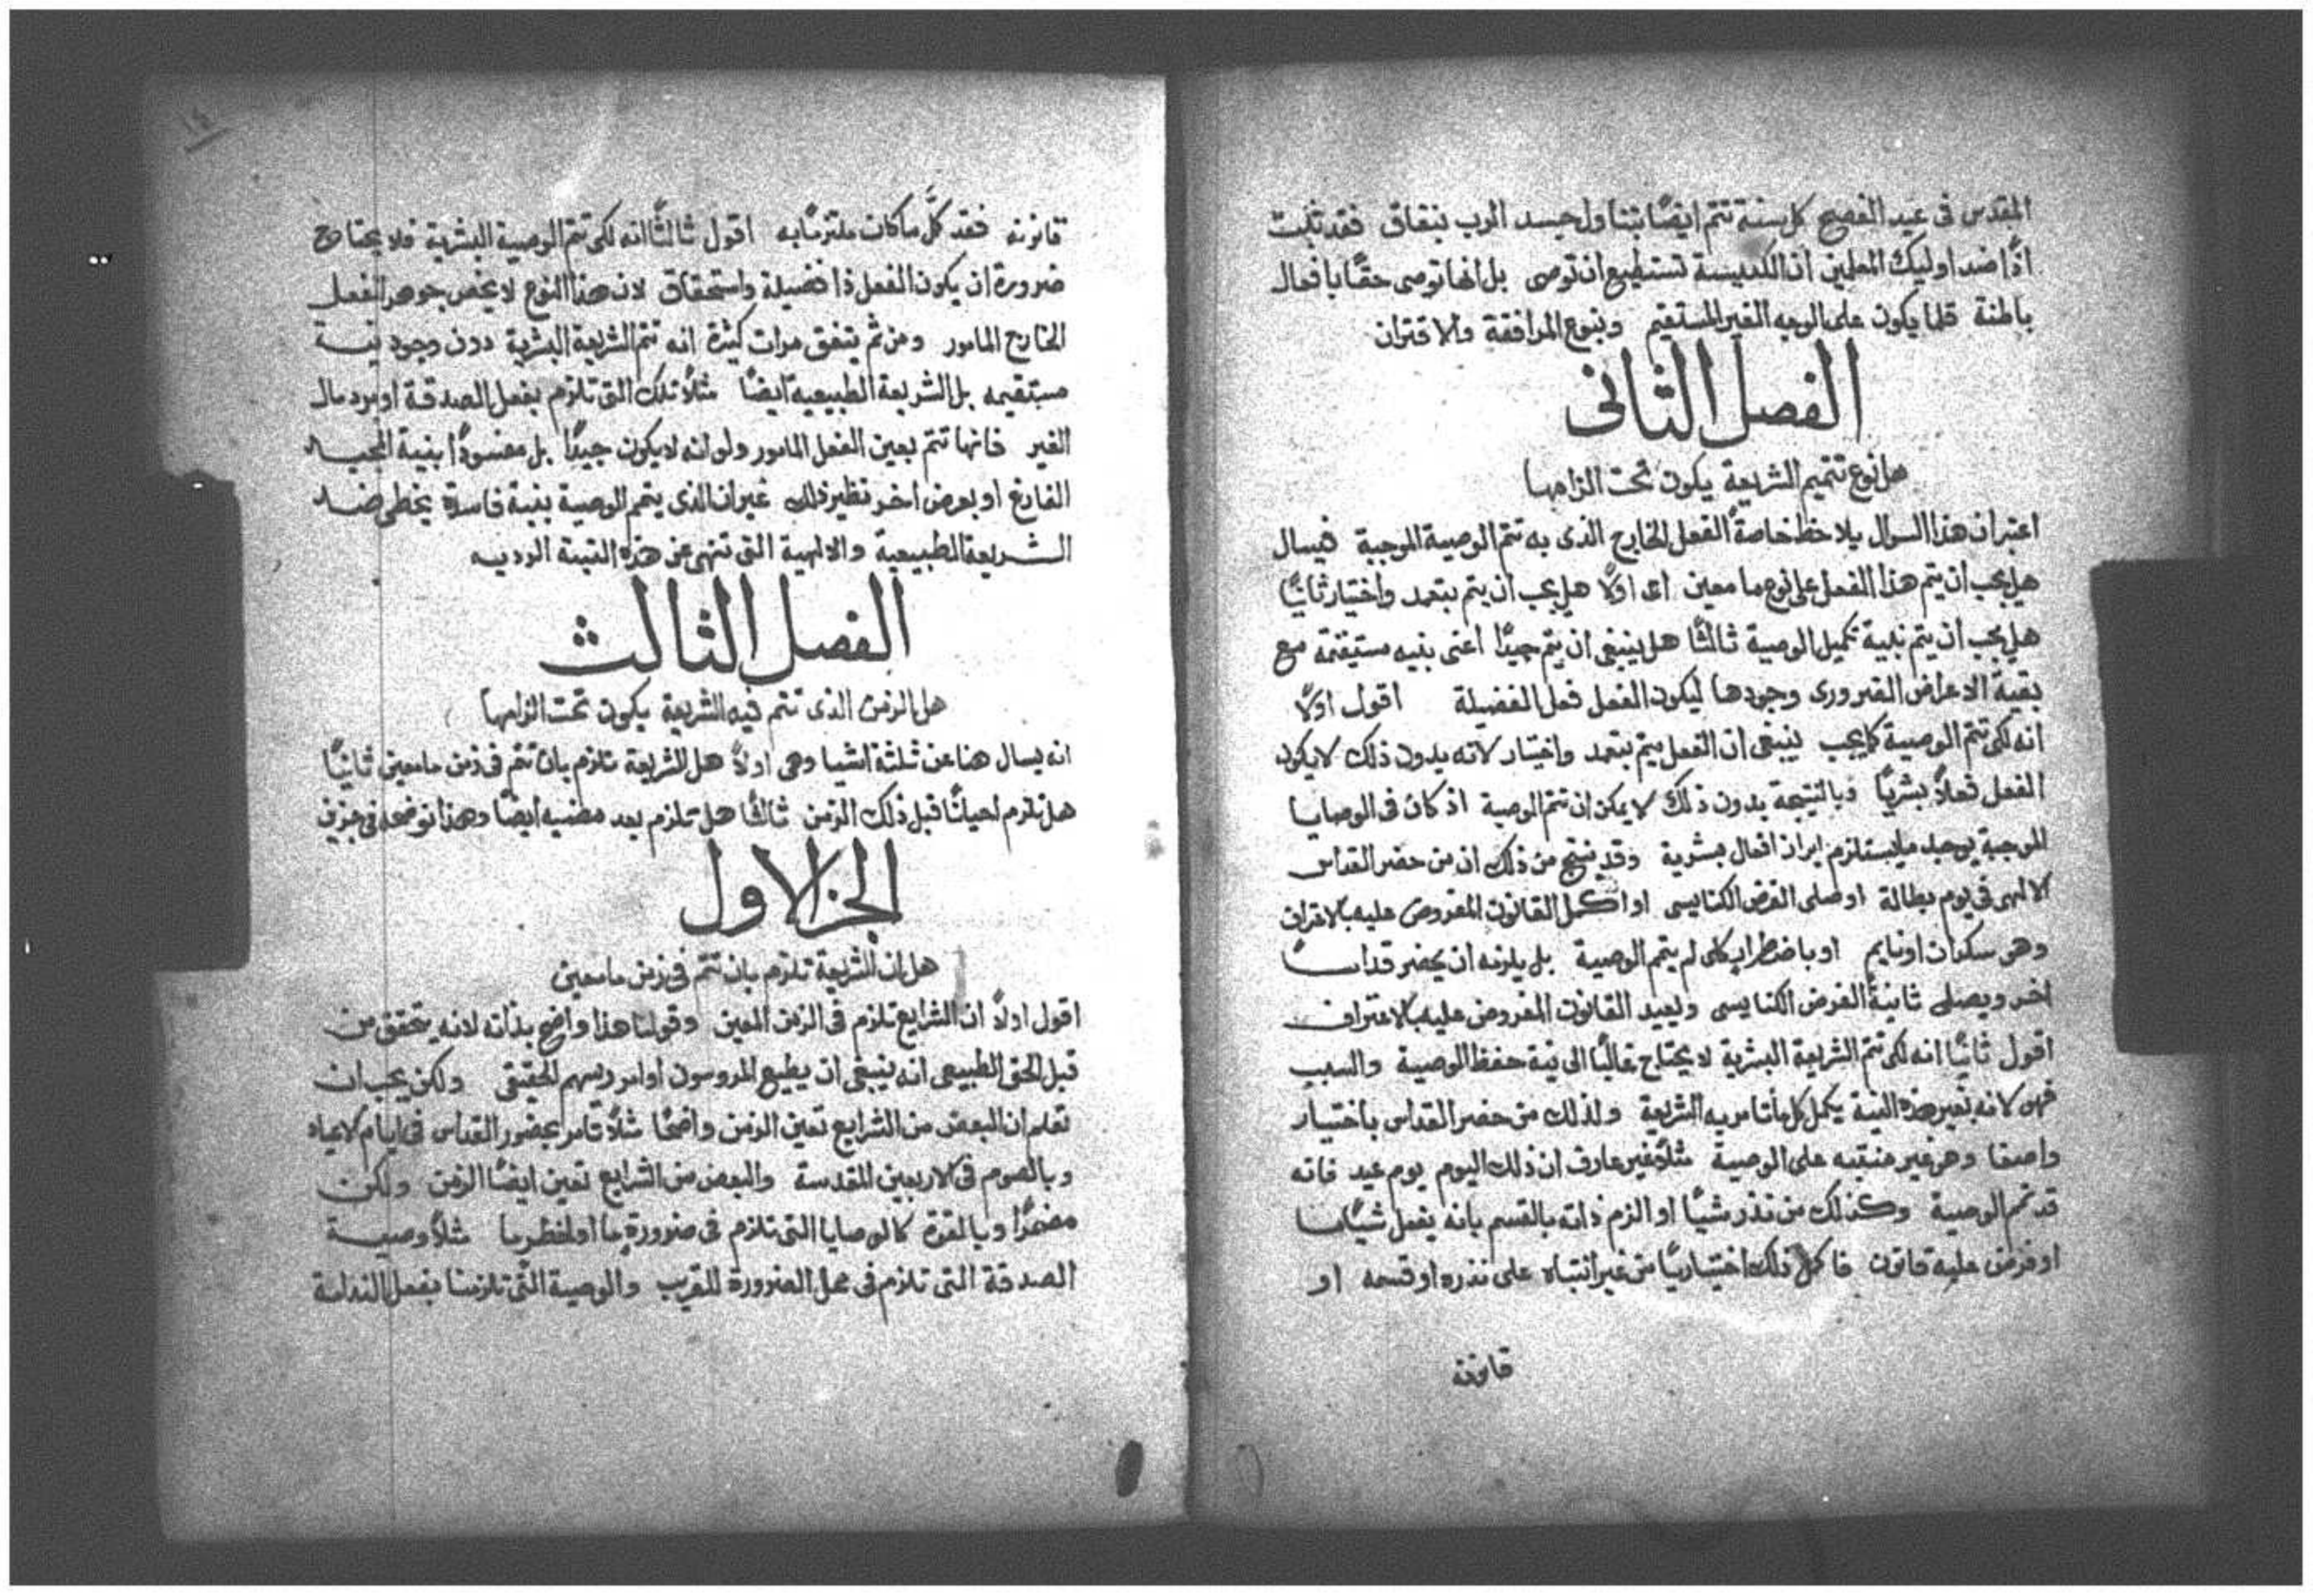 المقدس فى عيد الفصيح كل سنة تتم ايضًا بتناول جسد الرب بنفاق فقد ثبت
اذًا ضد اوليك المعلمين ان الكنيسة تستطيع ان توصى بل انها توصى حقًا بافعال
باطنة قلما يكون على الوجه الغير المستقيم وبنوع المرافقة والاقتران
الفصل الثانى
هل نوع تتميم الشريعة يكون تحت الزامها
اعتبر ان هذا السوال يلاحظ خاصةً الفعل الخارج الذى به تتم الوصية الموجبة فيسال
هل يجب ان يتم هذا الفعل على نوع ما معين اى اولًا هل يجب ان يتم بتعمد واختيار ثانيًا
هل يجب ان يتم بنية تكميل الوصية ثالثًا هل ينبغى ان يتم جيدًا اعنى بنيه مستقيمة مع
بقية الاعراض الضرورى وجودها ليكون الفعل فعل الفضيلة اقول اولًا
انه لكى تتم الوصية كما يجب ينبغى ان الفعل يتم بتعمد واختيار لانه بدون ذلك لا يكون
الفعل فعلًا بشريًا وبالنتيجة بدون ذلك لا يمكن ان تتم الوصية اذ كان فى الوصايا
الموجبة يوجد ما يستلزم ابراز افعال بشرية وقد ينتج من ذلك ان من حضر القداس
الالهى فى يوم بطالة او صلى الفرض الكنايسى او اكمل القانون المفروض عليه بالاعتراف
وهو سكران او نايم او باضطراب كلى لم يتمم الوصية بل يلزمه ان يحضر قداسًا
اخر ويصلى ثانيةً الفرض الكنايسى ويعيد القانون المفروض عليه بالاعتراف
اقول ثانيًا انه لكى تتم الشريعة البشرية لا يحتاج غالبًا الى نية حفظ الوصية والسبب
فهو لانه بغير هذه النية يكمل كل ما تامر به الشريعة ولذلك من حضر القداس باختيار
واصغا وهو غير منتبه على الوصية مثلًا غير عارف ان ذلك اليوم يوم عيد فانه
قد تمم الوصية وكذلك من نذر شيًا او الزم ذاته بالقسم بانه يفعل شيًا ما
او فرض عليه قانون فاكمل ذلك اختياريًا من غير انتباه على نذره او قسمه او
قانونه
١٤
قانونه فقد كمَّل ما كان ملتزمًا به اقول ثالثًا انه لكى تتم الوصية البشرية فلا يحتاج
ضرورة ان يكون الفعل ذا فضيلة واستحقاق لان هذا النوع لا يخص جوهر الفعل
الخارج المامور ومن ثم يتفق مرات كثيرة انه تتم الشريعة البشرية دون وجود نية
مستقيمه بل الشريعة الطبيعيه ايضًا مثلًا تلك التى تلزم بفعل الصدقة او برد مال
الغير فانها تتم بعين الفعل المامور ولو انه لا يكون جيدًا بل مفسودًا بنية المجد
الفارغ او بعرض اخر نظير ذلك غير ان الذى يتمم الوصية بنية فاسدة يخطى ضد
الشريعة الطبيعية والالهية التى تنهى عن هذه النية الرديه
الفصل الثالث
هل الزمن الذى تتم فيه الشريعة يكون تحت الزامها
انه يسال هنا عن ثلثة اشيا وهى اولًا هل الشريعة تلزم بان تتم فى زمن ما معين ثانيًا
هل تلزم احيانًا قبل ذلك الزمن ثالثًا هل تلزم بعد مضيه ايضًا وهذا نوضحه فى جزين
الجز الاول
هل ان الشريعة تلزم بان تتم فى زمن ما معين
اقول اولًا ان الشرايع تلزم فى الزمن المعين وقولنا هذا واضح بذاته لانه يتحقق من
قبل الحق الطبيعى انه ينبغى ان يطيع المروسون اوامر ريسهم الحقيقى ولكن يجب ان
تعلم ان البعض من الشرايع تعين الزمن واضحًا مثلًا تامر بحضور القداس فى ايام الاعياد
وبالصوم فى الاربعين المقدسة والبعض من الشرايع تعين ايضًا الزمن ولكن
مضمرًا وبالقوة كالوصايا التى تلزم فى ضرورة ما او لخطر ما مثلًا وصية
الصدقة التى تلزم فى محل الضرورة للقريب والوصية التى تلزمنا بفعل الندامة